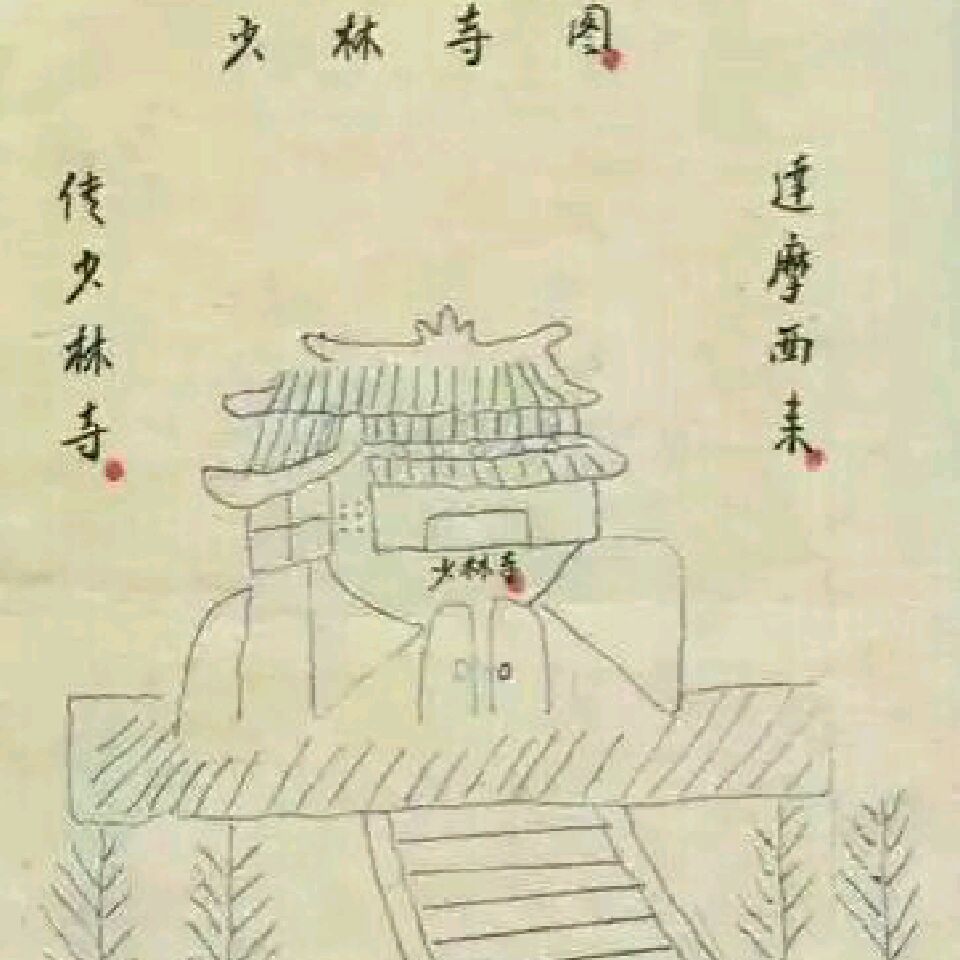 少林寺图
達摩西来
传少林寺
少林寺